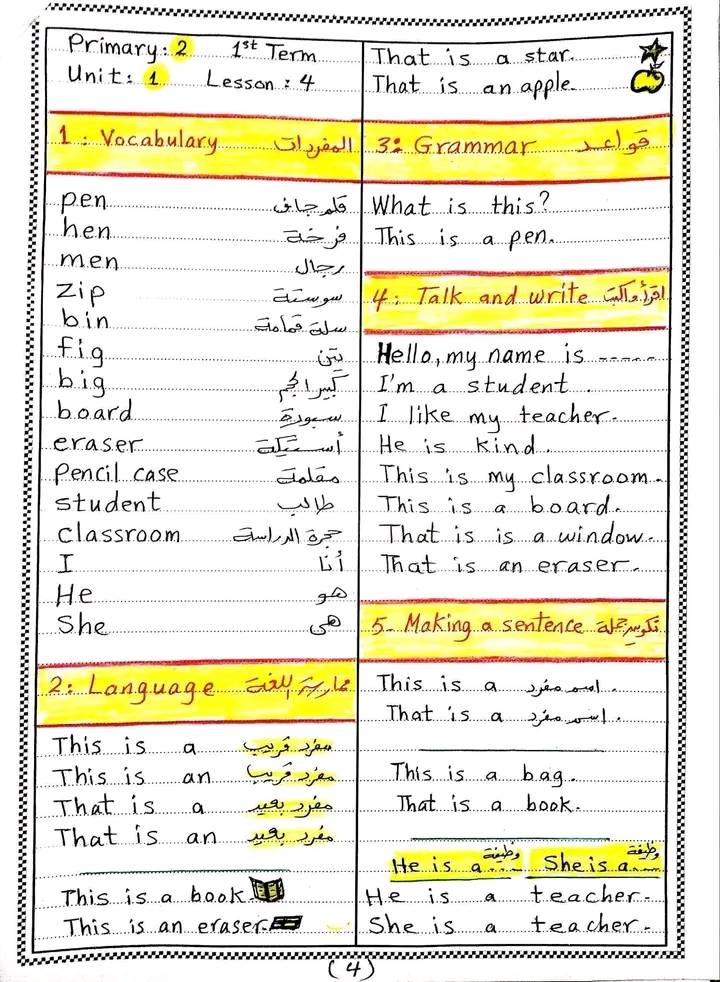 Primary: 2 1st Term
Unit: 1 Lesson : 4
1 : Vocabulary المفردات
pen قلم جاف
hen فرخة
men رجال
zip سوستة
bin سلة قمامة
fig تين
big كبير الحجم
board سبورة
eraser أستيكة
pencil case مقلمة
student طالب
classroom حجرة الدراسة
I أنا
He هو
She هى
2: Language ممارسة اللغة
This is a مفرد قريب
This is an مفرد قريب
That is a مفرد بعيد
That is an مفرد بعيد
This is a book.
This is an eraser.
That is a star.
That is an apple.
3: Grammar قواعد
What is this?
This is a pen.
4: Talk and write اقرأ واكتب
Hello, my name is -----
I'm a student .
I like my teacher.
He is kind.
This is my classroom.
This is a board.
That is is a window.
That is an eraser.
5- Making a sentence تكوين جملة
This is a اسم مفرد .
That is a اسم مفرد .
This is a bag.
That is a book.
He is a وظيفة .... She is a وظيفة ....
He is a teacher.
She is a teacher.
(4)